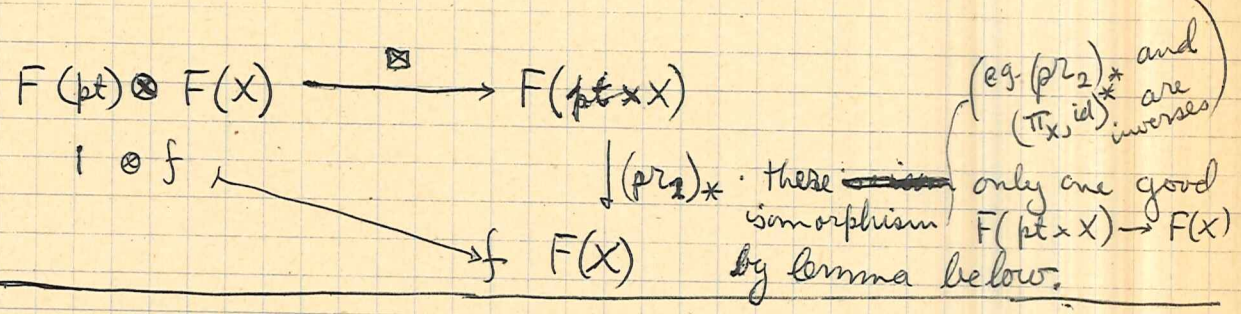 F(pt) ⊗ F(X) ⟶ F(pt × X)
⊠
(eg. (pr₂)* and
(π_X, id)* are
inverses)
1 ⊗ f ↦ f
F(X)
↓ (pr₂)* . these only one good
isomorphism F(pt × X) → F(X)
by lemma below.